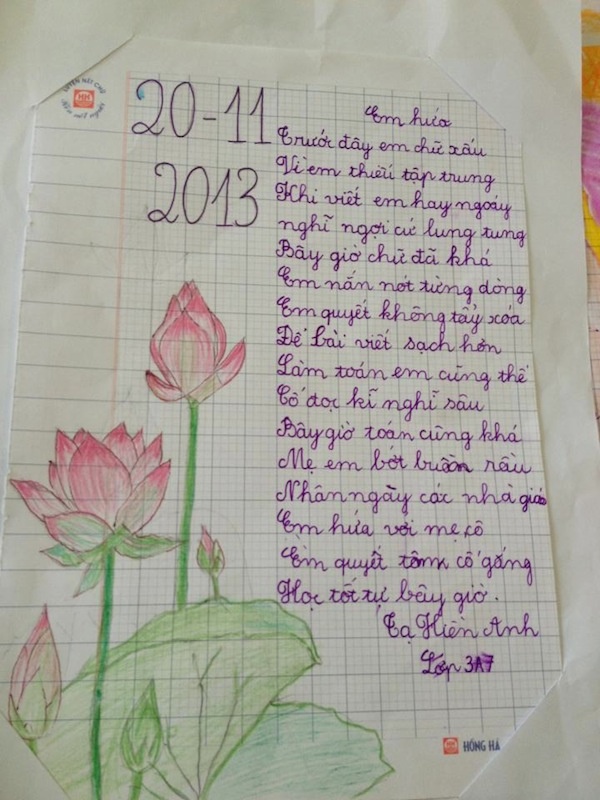 LUYỆN NÉT CHỮ
HH
RÈN NẾT NGƯỜI
20-11
2013
Em hứa
Trước đây em chữ xấu
Vì em thiếu tập trung
Khi viết em hay ngoáy
nghĩ ngợi cứ lung tung
Bây giờ chữ đã khá
Em nắn nót từng dòng
Em quyết không tẩy xóa
Để bài viết sạch hơn
Làm toán em cũng thế
Cố đọc kĩ nghĩ sâu
Bây giờ toán cũng khá
Mẹ em bớt buồn rầu
Nhân ngày các nhà giáo
Em hứa với mẹ, cô
Em quyết tâm cố gắng
Học tốt tự bây giờ.
Tạ Hiền Anh
Lớp 3A7
HH HỒNG HÀ